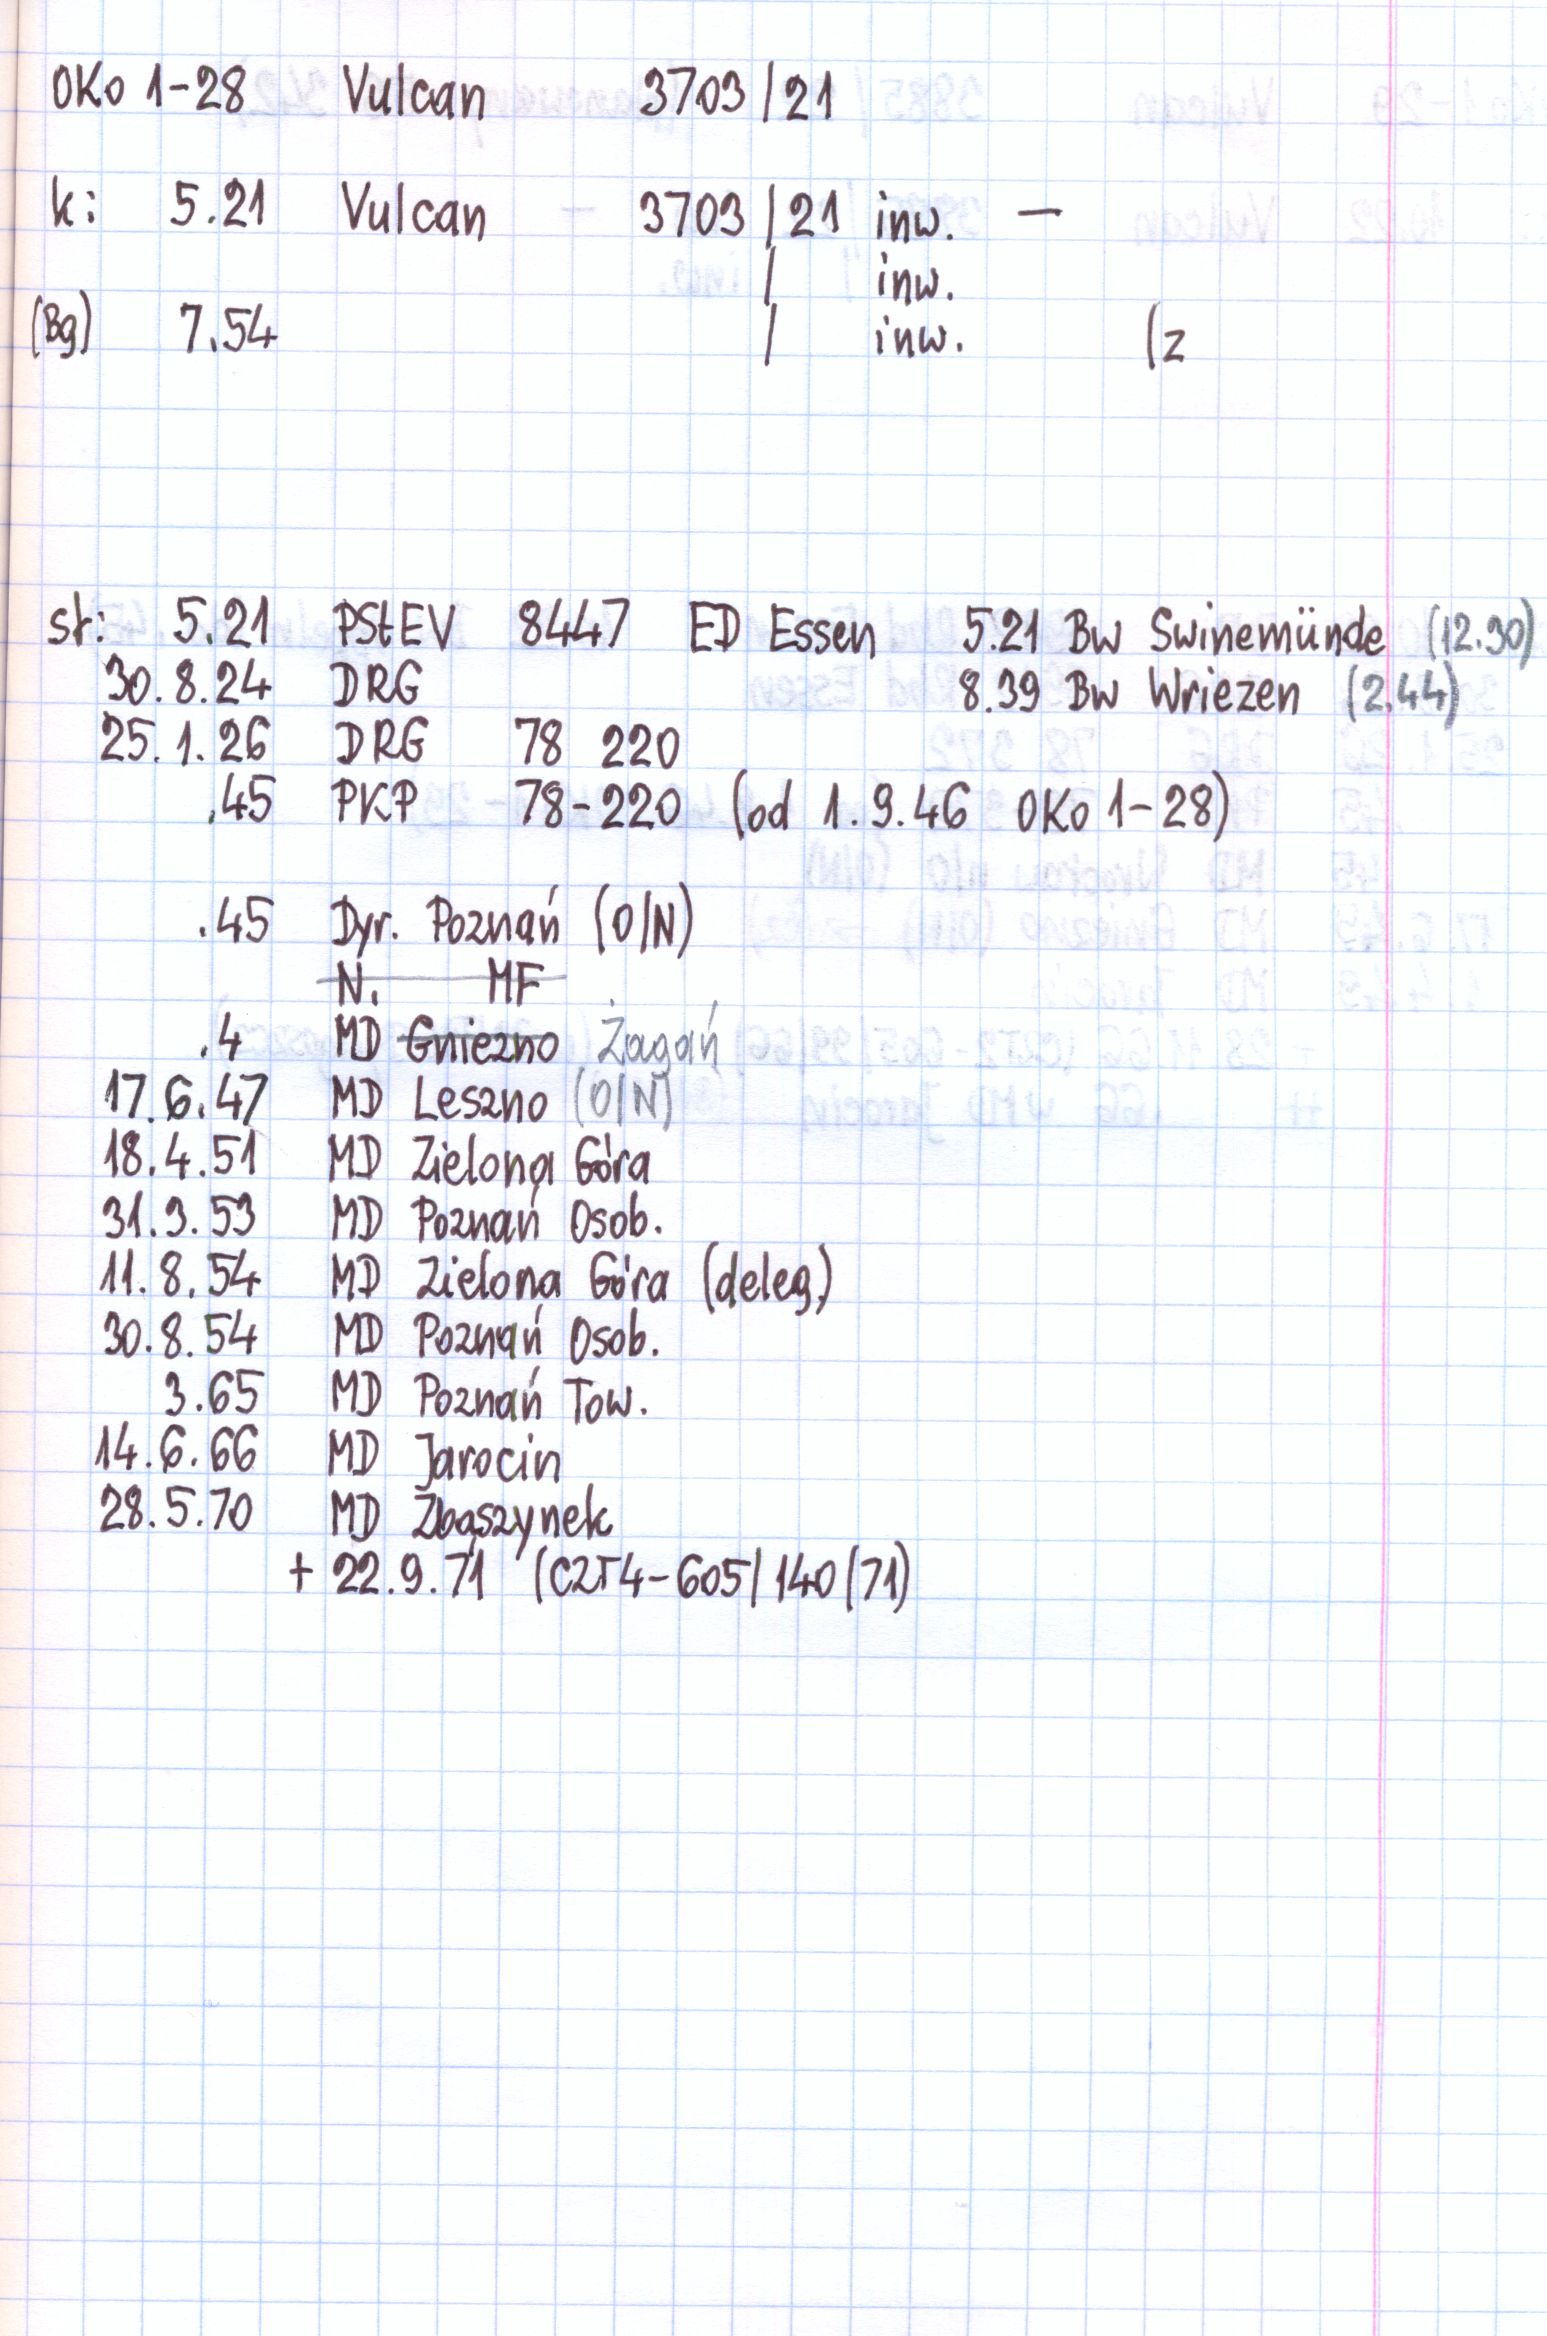 OKo 1-28 Vulcan 3703/21
k: 5.21 Vulcan - 3703/21 inw. -
/ inw.
(Bg) 7.54 / inw. (z
st: 5.21 PStEV 8447 ED Essen 5.21 Bw Swinemünde (12.30)
30.8.24 DRG 8.39 Bw Wriezen (2.44)
25.1.26 DRG 78 220
.45 PKP 78-220 (od 1.9.46 OKo 1-28)
.45 Dyr. Poznań (O/N)
N. MF
.4 MD Gniezno Żagań
17.6.47 MD Leszno (O/N)
18.4.51 MD Zielona Góra
31.3.53 MD Poznań Osob.
11.8.54 MD Zielona Góra (deleg.)
30.8.54 MD Poznań Osob.
3.65 MD Poznań Tow.
14.6.66 MD Jarocin
28.5.70 MD Zbąszynek
+ 22.9.71 (CZT4-605/140/71)